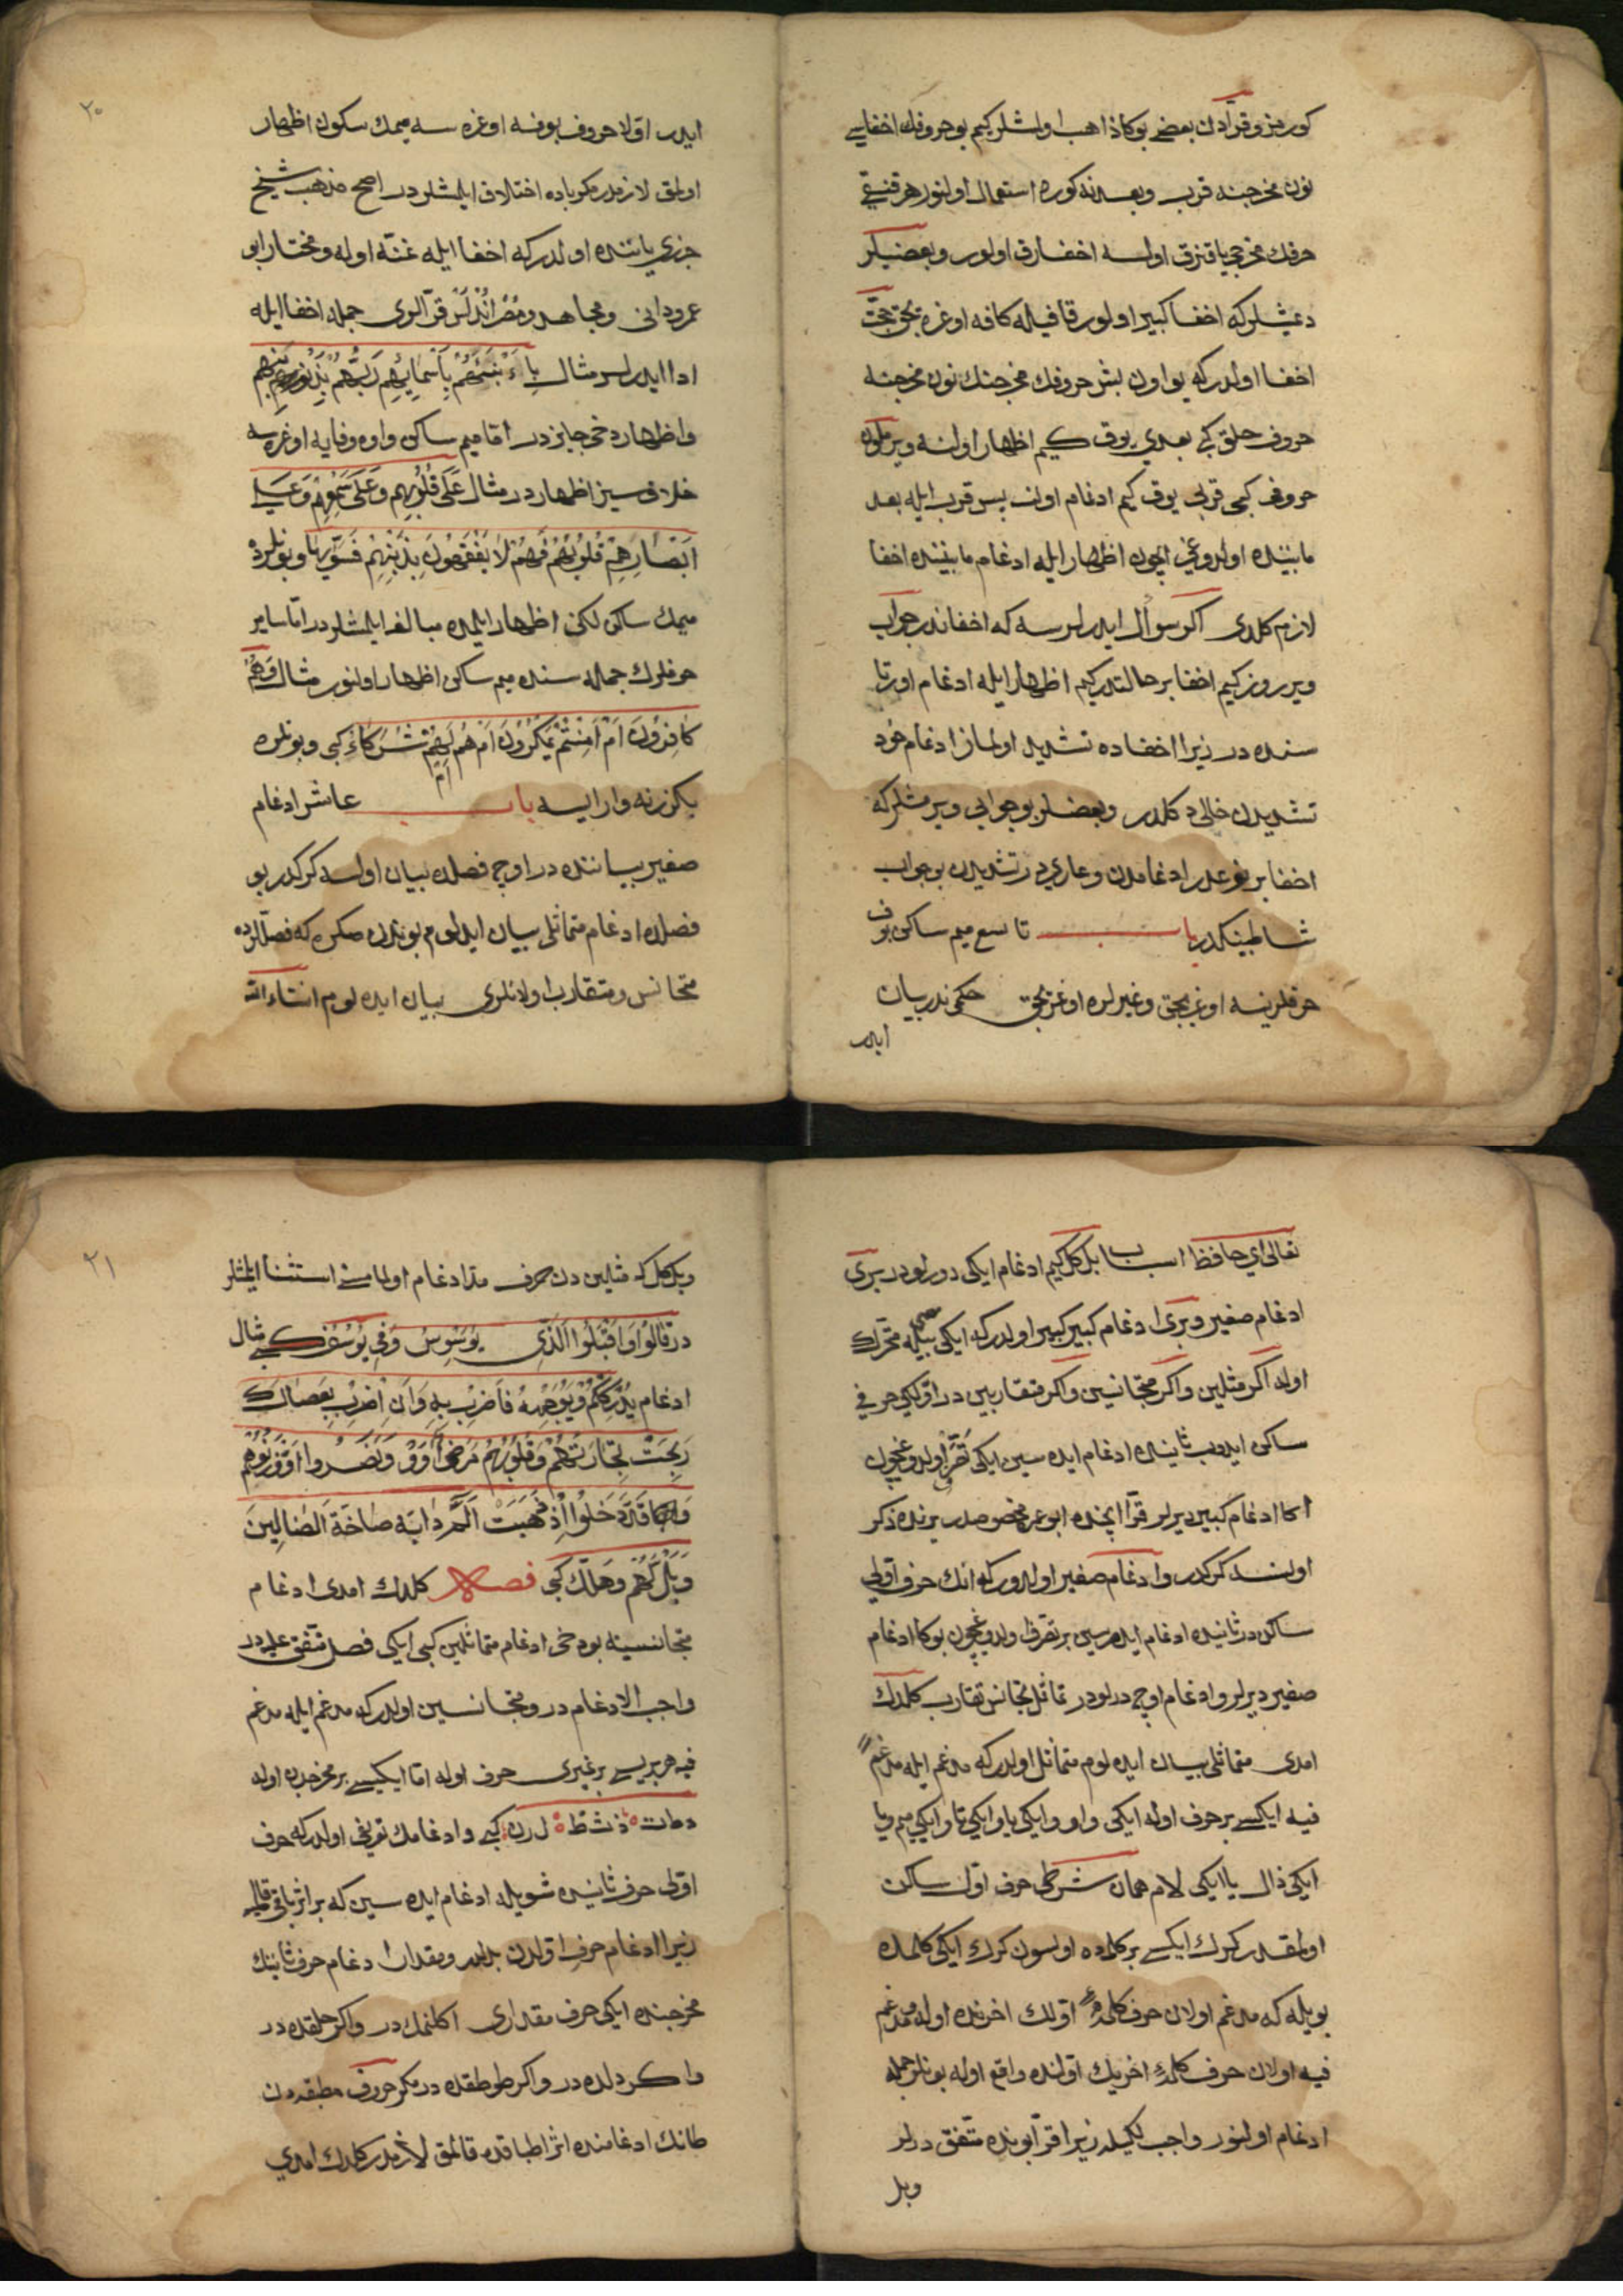 كورمز و قرّادن بعضى بوكا ذاهب اولمشلر كيم بو حروفك اخفاسى
نون مخرجنه قرب و بعدنه كوره استعمال اولنور هر قنغى
حرفك مخرجى ياقنرق اولسه اخفا ارق اولور و بعضيلر
دميشلر كه اخفا كبير اولور قافيله كافه اوغره يجق حجّت
اخفا اولدر كه بو اون بش حروفك مخرجنك نون مخرجنه
حروف حلق كبى بعدى يوق كيم اظهار اولنه و يرملون
حروفى كبى قربى يوق كيم ادغام اولنه پس قرب ايله بعد
مابينده اولدوغى اچون اظهار ايله ادغام مابيننده اخفا
لازم كلدى اكر سوأل ايدرلرسه كه اخفا ندر جواب
ويرروز كيم اخفا بر حالتدر كيم اظهار ايله ادغام اورتا
سنده در زيرا اخفاده تشديد اولماز ادغام خود
تشديدن خالى دكلدر و بعضلر بو جوابى ويرمشلر كه
اخفا بر نوعدر ادغامدن و عاريدر تشديدن بو جواب
شاطبينكدر باب تاسع ميم ساكن بو ف
حرفلرينه اوغريجق و غيرلره اوغريجق حكمى ندر بيان
ايدر
٢٠
ايدر اوّلا حروف بوفه اوغره سه ميمك سكون اظهار
اولمق لازمدر مكر باده اختلاف ايلمشلردر اصح مذهب شيخ
جزرى ياننده اولدر كه اخفا ايله غنّه اوله و مختار ابو
عمرو دانى و مجاهد و مصر اندلس قرّالرى جمله اخفا ايله
ادا ايدرلر مثال باء انبئهم باسمائهم ربهم بذنوبهم
و اظهار دخى جايزدر امّا ميم ساكن واوه و فايه اوغره سه
خلافسيز اظهاردر مثال على قلوبهم وعلى سمعهم وعلى
ابصارهم قلوبهم فهم لا يفقهون بذنبهم فسوّيها و بونلرده
ميمك ساكن لكنى اظهار ايلمده مبالغه ايلمشلردر امّا ساير
حرفلرك جمله سنده ميم ساكن اظهار اولنور مثال وهم
كافرون ام امنتم يمكرون ام هم لهم شركاء كبى و بونلره
بكزر نه وار ايسه باب عاشر ادغام
صغير بياننده در اوچ فصلده بيان اولنسه كركدر بو
فصلده ادغام متماثلى بيان ايدلوم بوندن صكره كه فصللرده
متجانس و متقارب اولانلرى بيان ايده لوم انشاء الله
تعالى اى حافظ اسباب بل كل كيم ادغام ايكى دورلودر برى
ادغام صغير و برى ادغام كبير كبير اولدر كه ايكيسى بيله متحرك
اوله اكر مثلين و اكر متجانسين و اكر متقاربين در اوّلكى حرفى
ساكن ايدوب ثانيده ادغام ايده سين ايكى تصرّف اولدوغيچون
اكا ادغام كبير ديرلر قرّا ايچنده ابو عمر مخصوصدر يرنده ذكر
اولنسه كركدر و ادغام صغير اولدور كه انك حرف اوّلى
ساكندر ثانيده ادغام ايدرسين بر تصرّف اولدوغيچون بوكا ادغام
صغير ديرلر و ادغام اوچ درلودر تماثل تجانس تقارب كلدك
امدى متماثلى بيان ايده لوم متماثل اولدر كه مدغم ايله مدغم
فيه ايكسى بر حرف اوله ايكى واو و ايكى يا و ايكى تا و ايكى ميم و يا
ايكى ذال يا ايكى لام همان شرطى حرف اوّل ساكن
اولمقدر كرك ايكسى بر كلمه ده اولسون كرك ايكى كلمه ده
بويله كه مدغم اولان حرف كلمهٔ اوّلك اخرنده اوله مدغم
فيه اولان حرف كلمهٔ اخرينك اوّلنده واقع اوله بونلر جمله
ادغام اولنور واجب لكيله زيرا قرّا بونده متّفقدرلر
و بل
٢١
و بل كل كه مثلين دن حرف مدّ ادغام اولمامسى استثنا ايلمشلر
در قالوا واقبلوا الذى يوسوس و فى يوسف كبى مثال
ادغام يدرككم و يوجهه فاضرب به و ان اضرب بعصاك
ربحت تجارتهم و قلوبهم مرض اووا و نصروا اوّزنوهم
و قد دخلوا اذ ذهبت الم دابّة صاخّة الضالين
و بل لهم و هل لك كبى فصل كلدك امدى ادغام
متجانسينه بو دخى ادغام متماثلين كبى ايكى فصل متّفق عليدر
واجب الادغام در و متجانسين اولدر كه مدغم ايله مدغم
فيه هر بريسى بر غيرى حرف اوله امّا ايكيسى بر مخرجده اوله
د ط ت ذ ث ظ ل ر ن كبى و ادغامك تعريفى اولدر كه حرف
اوّلى حرف ثانيده شويله ادغام ايده سين كه بر اثر باقى قالميه
زيرا ادغام حرف اوّلدن بدلدر و مقدار ادغام حرف ثانينك
مخرجنده ايكى حرف مقدارى اكلنمكدر و اكر حلقده در
و اكر دلده در و اكر طوطقده در مكر حروف مطبقه دن
طانك ادغامنده اثر اطباقده قالمق لازمدر كلدك امدى